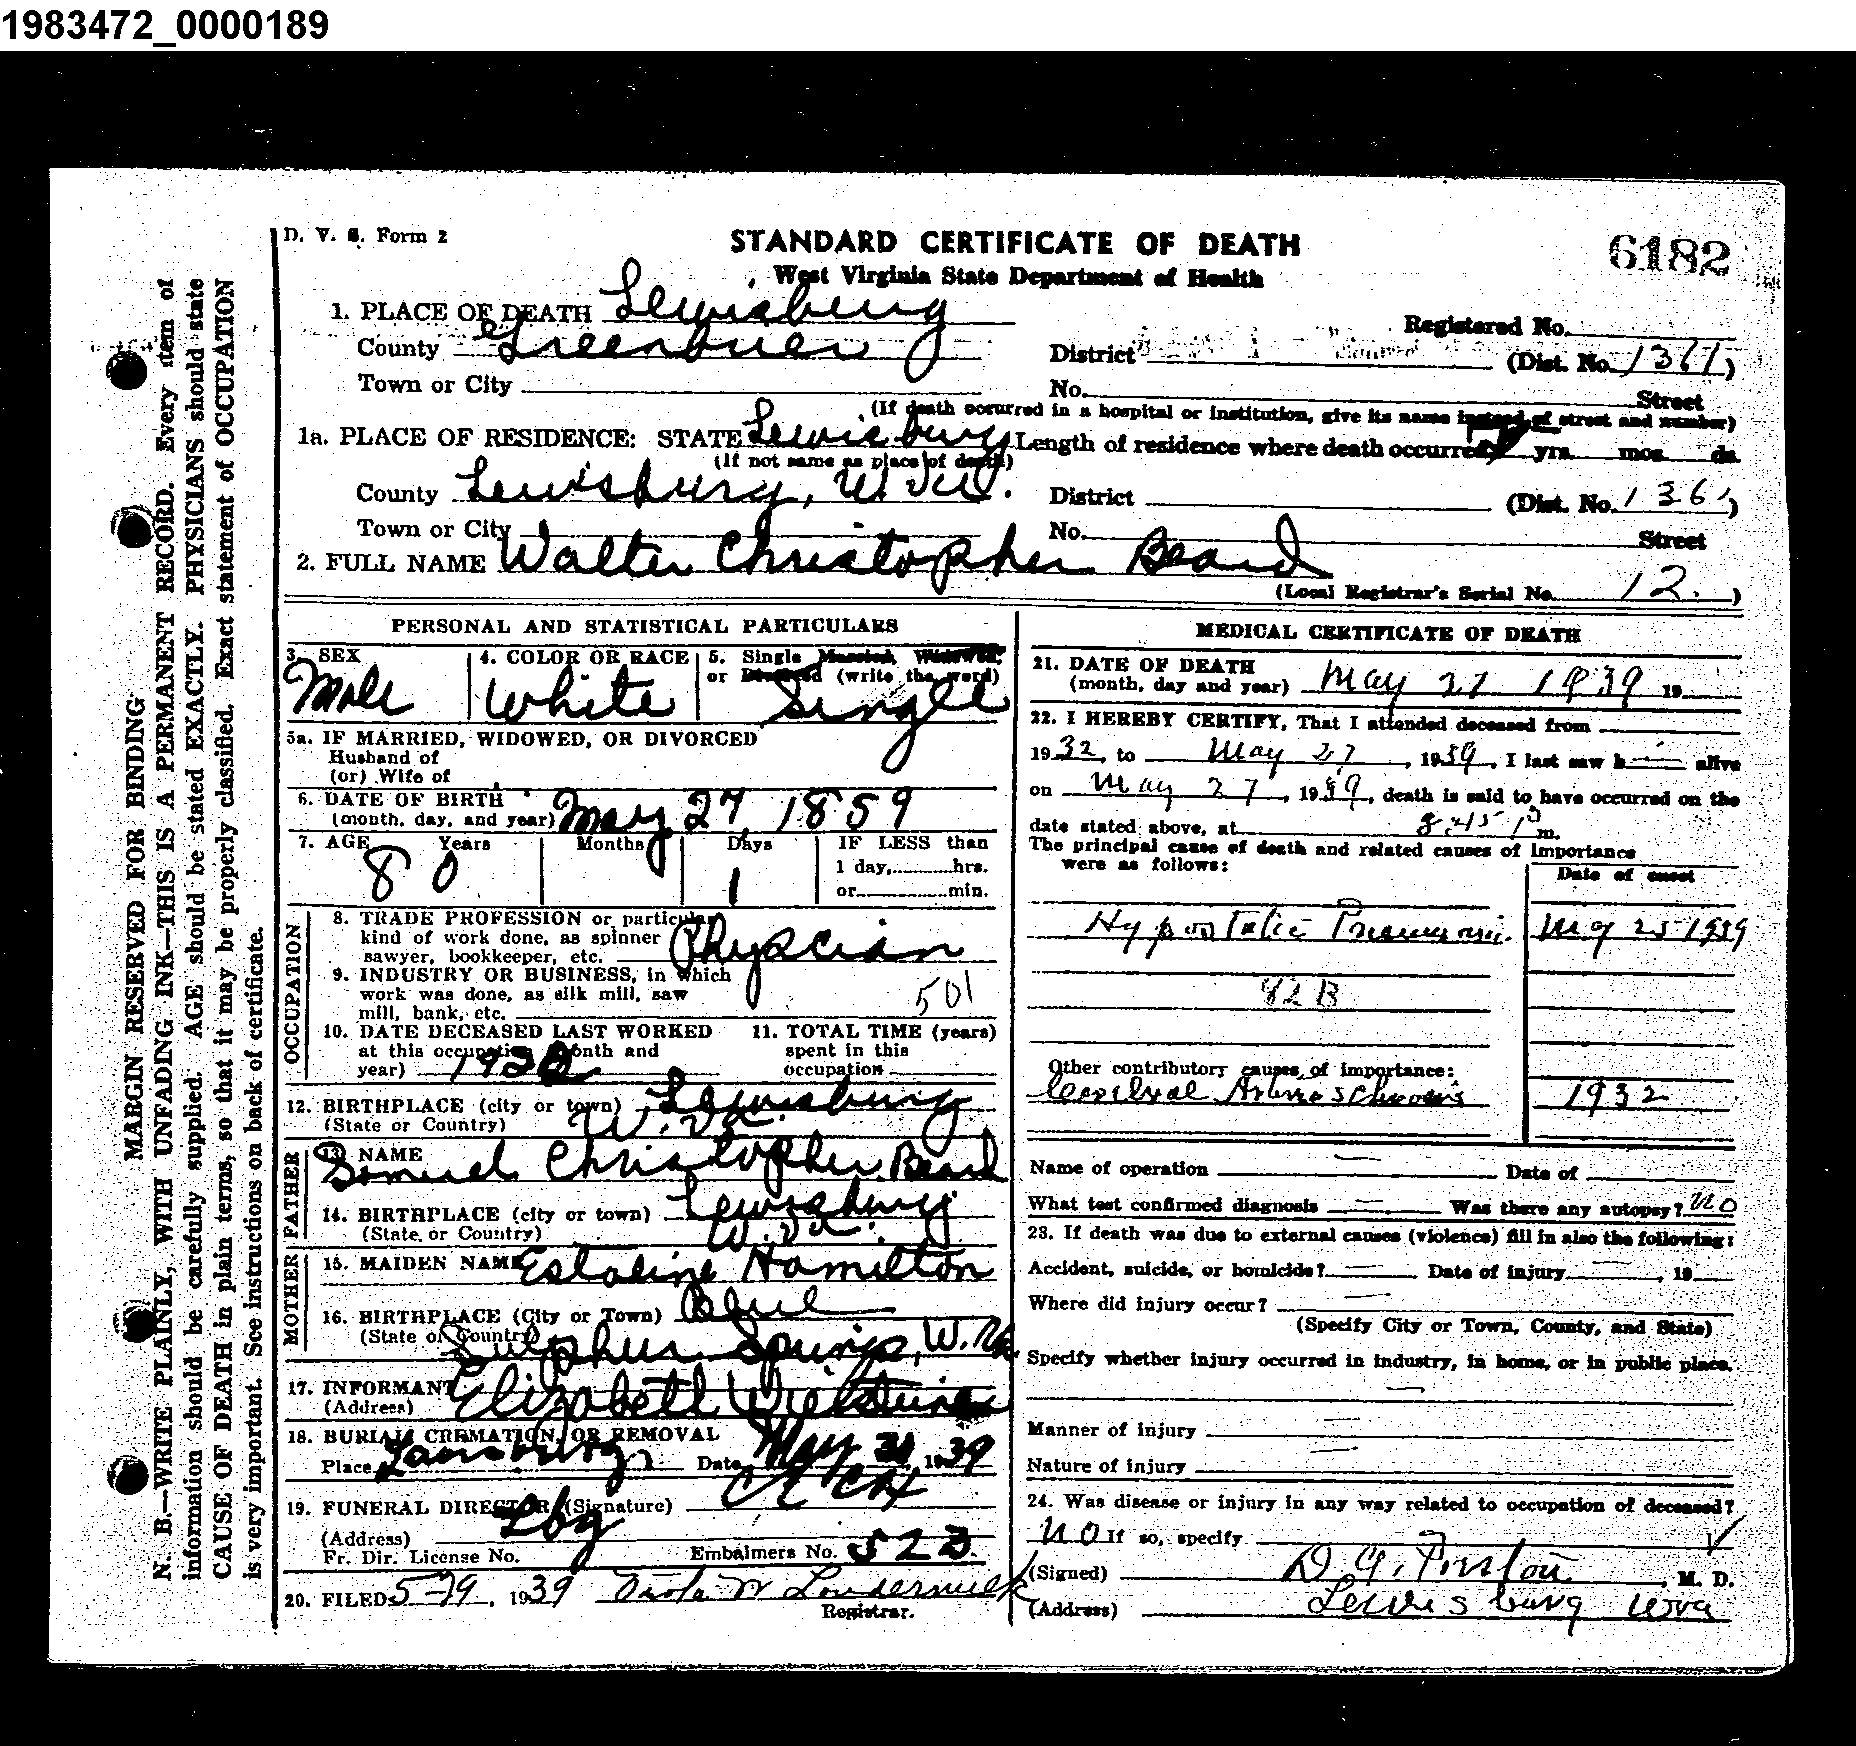 1983472_0000189
D. V. S. Form 2
STANDARD CERTIFICATE OF DEATH
6182
West Virginia State Department of Health
1. PLACE OF DEATH Lewisburg
Registered No.
County Greenbrier
District (Dist. No. 1361)
Town or City
No. Street
(If death occurred in a hospital or institution, give its name instead of street and number)
1a. PLACE OF RESIDENCE: STATE Lewisburg Length of residence where death occurred yrs. mos. ds.
(If not same as place of death)
County Lewisburg, W. Va. District (Dist. No. 1361)
Town or City No. Street
2. FULL NAME Walter Christopher Beard
(Local Registrar's Serial No. 12.)
PERSONAL AND STATISTICAL PARTICULARS
3. SEX Male
4. COLOR OR RACE White
5. Single Married, Widowed, or Divorced (write the word) Single
5a. IF MARRIED, WIDOWED, OR DIVORCED
Husband of
(or) Wife of
6. DATE OF BIRTH (month, day, and year) May 27 1859
7. AGE Years 80 Months Days 1 IF LESS than
1 day, hrs.
or min.
OCCUPATION
8. TRADE PROFESSION or particular
kind of work done, as spinner
sawyer, bookkeeper, etc. Physcian
9. INDUSTRY OR BUSINESS, in which
work was done, as silk mill, saw
mill, bank, etc. 501
10. DATE DECEASED LAST WORKED
at this occupation month and
year)
11. TOTAL TIME (years)
spent in this
occupation
12. BIRTHPLACE (city or town) Lewisburg
(State or Country) W. Va.
FATHER
13. NAME
Samuel Christopher Beard
14. BIRTHPLACE (city or town) Lewisburg
(State or Country) W. Va.
MOTHER
15. MAIDEN NAME Estaline Hamilton
16. BIRTHPLACE (City or Town) Blue
(State or Country) Sulphur Springs, W. Va.
17. INFORMANT Elizabeth
(Address)
18. BURIAL CREMATION, OR REMOVAL
Place Lewisburg Date May 31, 1939
19. FUNERAL DIRECTOR (Signature) C E Cox
(Address) Lbg
Fr. Dir. License No. Embalmers No. 523
20. FILED 5-29, 1939 Loudermilk
Registrar.
MEDICAL CERTIFICATE OF DEATH
21. DATE OF DEATH
(month, day and year) May 27 1939 19
22. I HEREBY CERTIFY, That I attended deceased from
1932, to May 27, 1939, I last saw h alive
on May 27, 1939, death is said to have occurred on the
date stated above, at 8:45 P m.
The principal cause of death and related causes of importance
were as follows:
Date of onset
Hypostatic Pneumonia. May 25 1939
82 B
Other contributory causes of importance:
Cerebral Arteriosclerosis 1932
Name of operation — Date of
What test confirmed diagnosis — Was there any autopsy? no
23. If death was due to external causes (violence) fill in also the following:
Accident, suicide, or homicide? — Date of injury —, 19
Where did injury occur? —
(Specify City or Town, County, and State)
Specify whether injury occurred in industry, in home, or in public place.
—
Manner of injury —
Nature of injury —
24. Was disease or injury in any way related to occupation of deceased?
no If so, specify
(Signed) , M. D.
(Address) Lewisburg W Va
MARGIN RESERVED FOR BINDING
N. B.—WRITE PLAINLY, WITH UNFADING INK—THIS IS A PERMANENT RECORD. Every item of
information should be carefully supplied. AGE should be stated EXACTLY. PHYSICIANS should state
CAUSE OF DEATH in plain terms, so that it may be properly classified. Exact statement of OCCUPATION
is very important. See instructions on back of certificate.